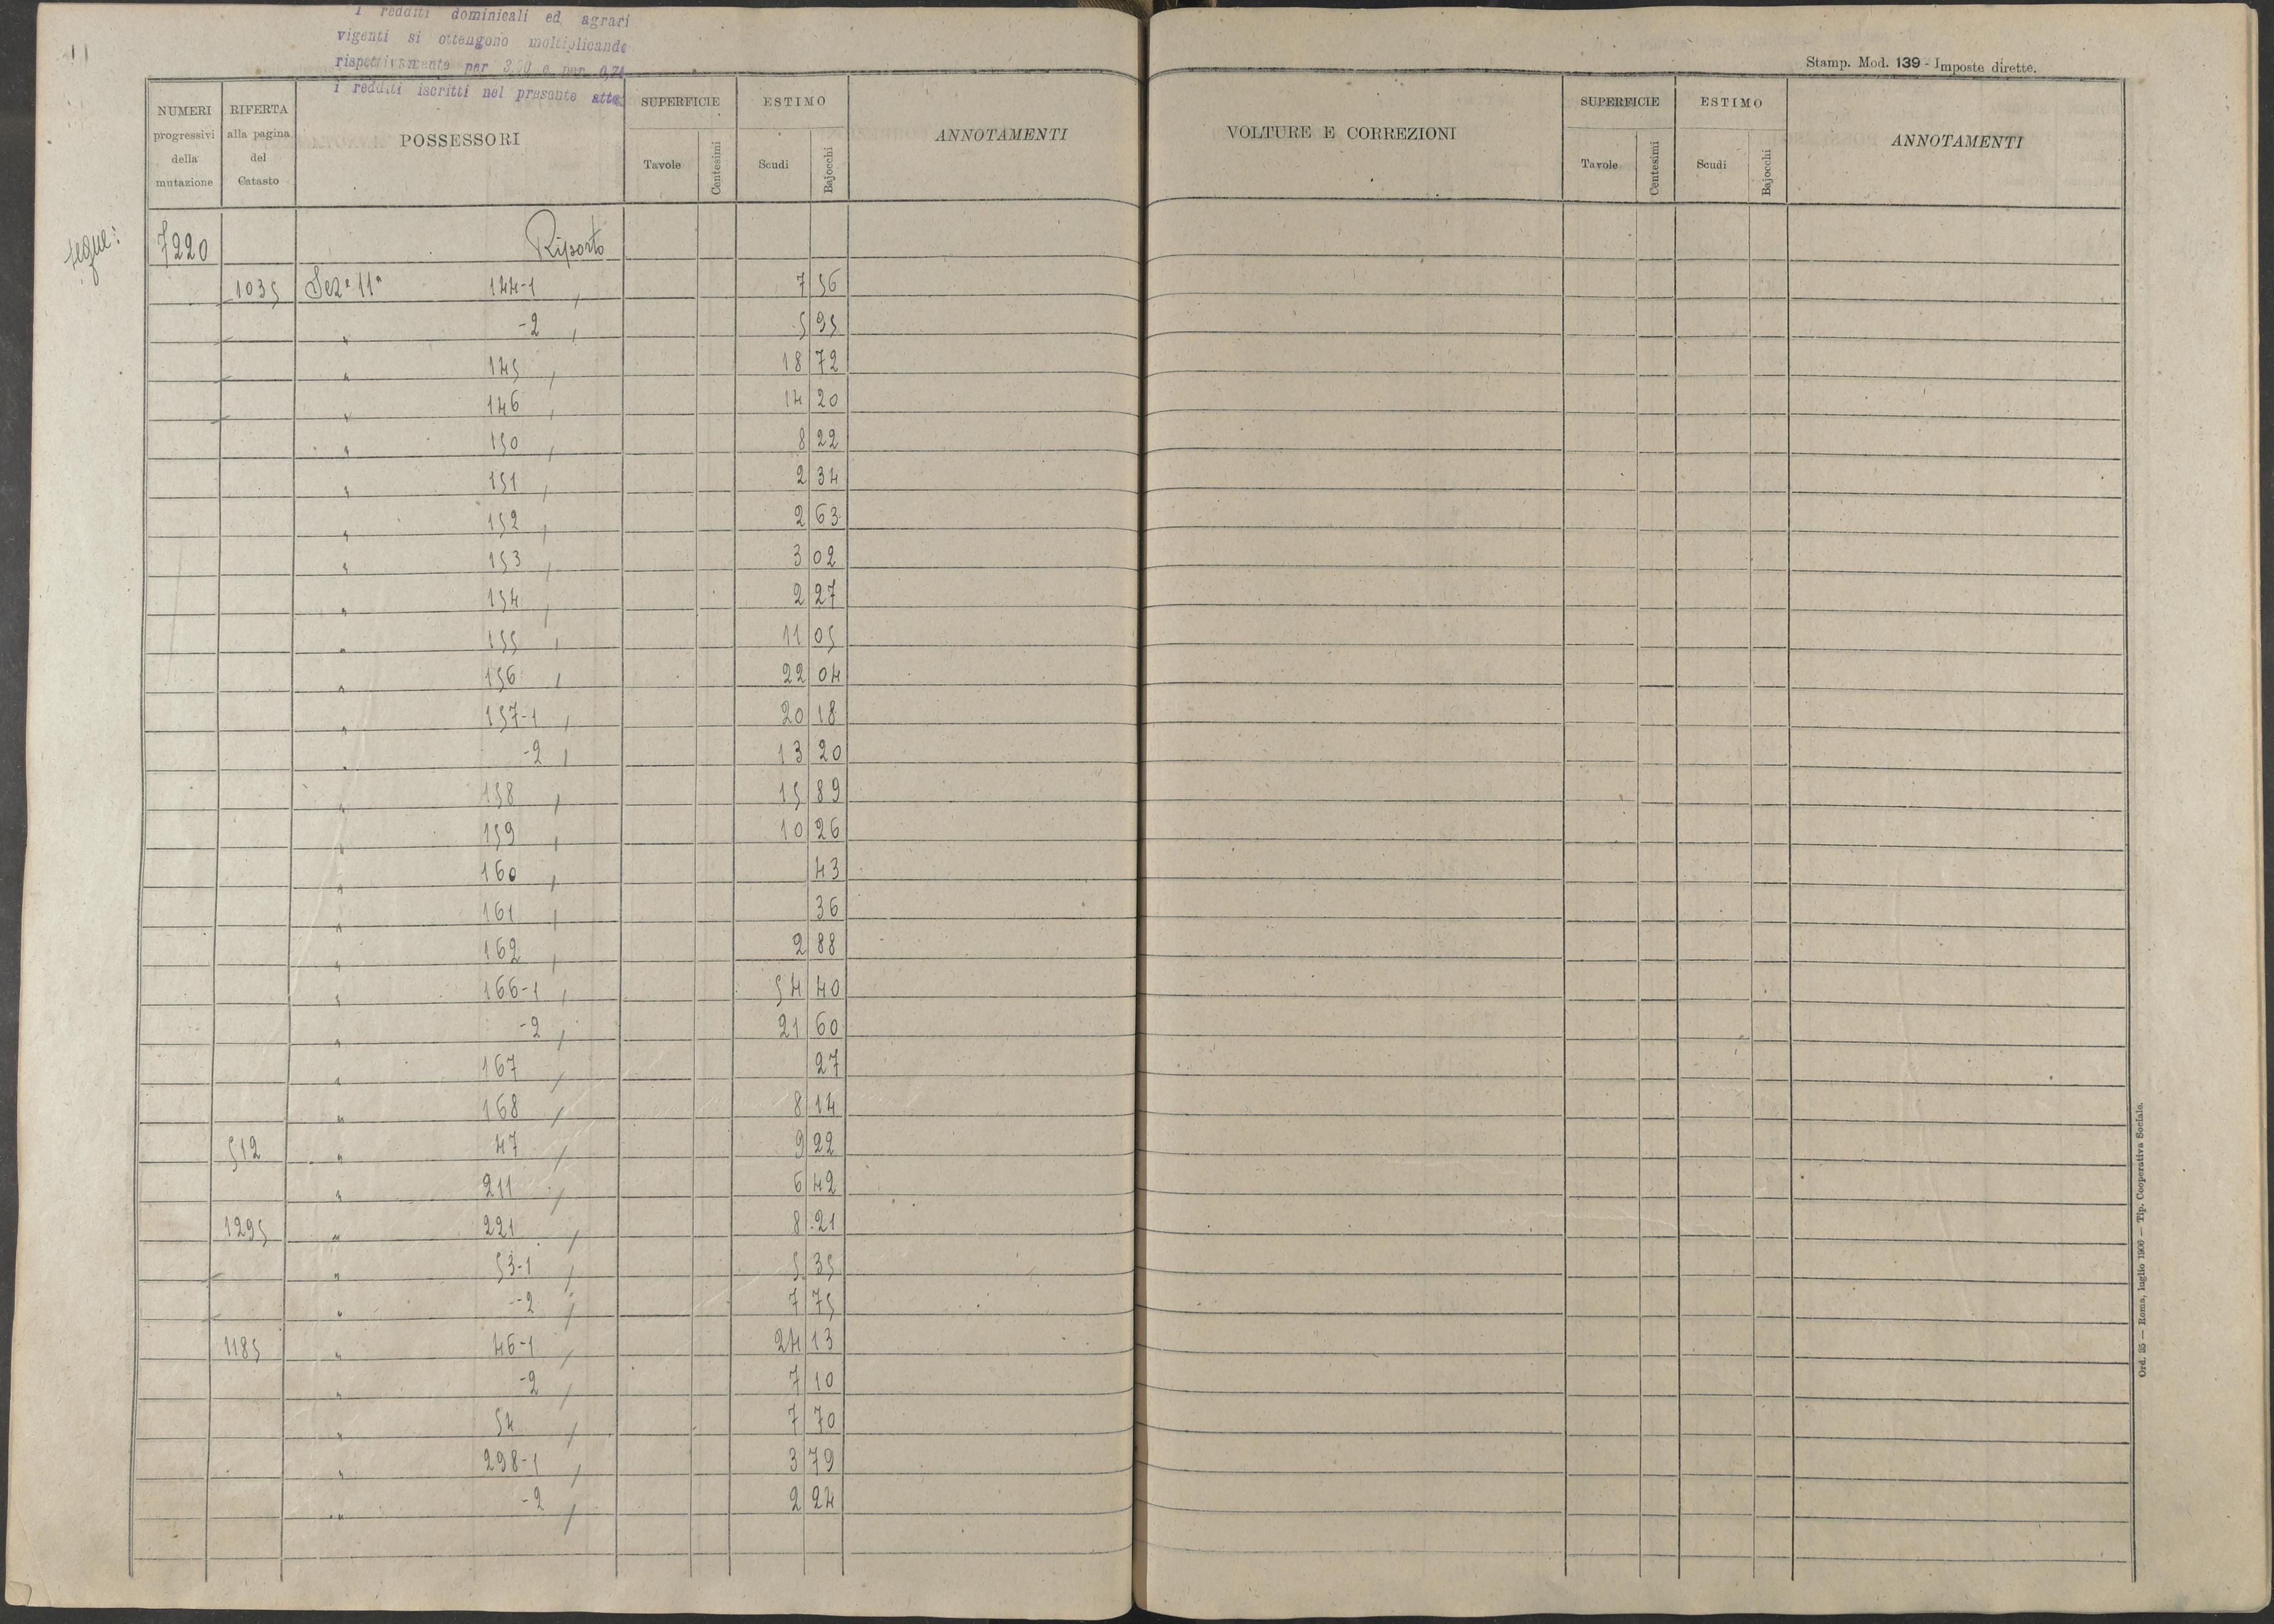 I redditi dominicali ed agrari
vigenti si ottengono moltiplicando
rispettivamente per 3,20 e per
i redditi iscritti nel presente atto
Stamp. Mod. 139 - Imposte dirette.
NUMERI progressivi della mutazione RIFERTA alla pagina del Catasto POSSESSORI SUPERFICIE Tavole Centesimi ESTIMO Scudi Bajocchi ANNOTAMENTI
VOLTURE E CORREZIONI SUPERFICIE Tavole Centesimi ESTIMO Scudi Bajocchi ANNOTAMENTI
segue: 7220 Riporto
1035 Sezᵉ 11ᵃ 144-1 , 7 56
" -2 , 5 95
" 145 , 18 72
" 146 , 14 20
" 150 , 8 22
" 151 , 2 34
" 152 , 2 63
" 153 , 3 02
" 154 , 2 27
" 155 , 11 05
" 156 , 22 04
" 157-1 , 20 18
" -2 , 13 20
" 158 , 15 89
" 159 , 10 26
" 160 , 43
" 161 , 36
" 162 , 2 88
" 166-1 , 54 40
" -2 , 21 60
" 167 , 27
" 168 , 8 14
512 " 47 , 9 22
" 211 , 6 42
1295 " 221 , 8 21
" 53-1 , 5 35
" -2 , 7 75
1185 " 46-1 , 24 13
" -2 , 7 10
" 54 , 7 70
" 298-1 , 3 79
" -2 , 2 24
Ord. 35 — Roma, luglio 1900 — Tip. Cooperativa Sociale.